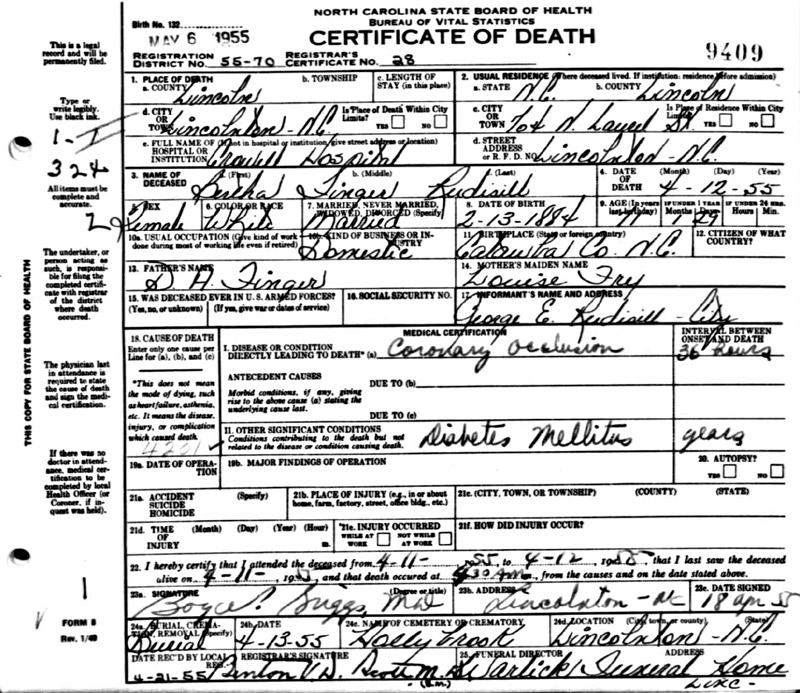 NORTH CAROLINA STATE BOARD OF HEALTH
BUREAU OF VITAL STATISTICS
CERTIFICATE OF DEATH
Birth No. 132
MAY 6 1955
REGISTRATION DISTRICT NO. 55-70 REGISTRAR'S CERTIFICATE NO. 28
9409
This is a legal record and will be permanently filed.
Type or write legibly. Use black ink.
1-I
324
All items must be complete and accurate.
2
The undertaker, or person acting as such, is responsible for filing the completed certificate with registrar of the district where death occurred.
The physician last in attendance is required to state the cause of death and sign the medical certification.
If there was no doctor in attendance, medical certification to be completed by local Health Officer (or Coroner, if inquest was held).
THIS COPY FOR STATE BOARD OF HEALTH
1
FORM 8
Rev. 1/49
1. PLACE OF DEATH
a. COUNTY Lincoln
b. TOWNSHIP
c. LENGTH OF STAY (in this place)
2. USUAL RESIDENCE (Where deceased lived. If institution: residence before admission)
a. STATE N.C. b. COUNTY Lincoln
d. CITY OR TOWN Lincolnton - N.C.
Is Place of Death Within City Limits? YES NO
c. CITY OR TOWN 704 N. Laurel St.
Is Place of Residence Within City Limits? YES NO
e. FULL NAME OF HOSPITAL OR INSTITUTION (If not in hospital or institution, give street address or location) Hospital
d. STREET ADDRESS OR R. F. D. NO. Lincolnton - N.C.
3. NAME OF DECEASED a. (First) b. (Middle) c. (Last)
Bertha Finger Rudisill
4. DATE OF DEATH (Month) (Day) (Year)
4-12-55
5. SEX Female
6. COLOR OR RACE White
7. MARRIED, NEVER MARRIED, WIDOWED, DIVORCED (Specify) Married
8. DATE OF BIRTH 2-13-1884
9. AGE (In years last birthday) 71
IF UNDER 1 YEAR Months Days 1 29
IF UNDER 24 HRS. Hours Min.
10a. USUAL OCCUPATION (Give kind of work done during most of working life even if retired)
10b. KIND OF BUSINESS OR INDUSTRY Domestic
11. BIRTHPLACE (State or foreign country) Catawba Co. N.C.
12. CITIZEN OF WHAT COUNTRY?
13. FATHER'S NAME D. H. Finger
14. MOTHER'S MAIDEN NAME Louise Fry
15. WAS DECEASED EVER IN U. S. ARMED FORCES? (Yes, no, or unknown) (If yes, give war or dates of service)
16. SOCIAL SECURITY NO.
17. INFORMANT'S NAME AND ADDRESS George E. Rudisill - City
18. CAUSE OF DEATH
Enter only one cause per Line for (a), (b), and (c)
*This does not mean the mode of dying, such as heart failure, asthenia, etc. It means the disease, injury, or complication which caused death
4201
MEDICAL CERTIFICATION
I. DISEASE OR CONDITION DIRECTLY LEADING TO DEATH* (a) Coronary Occlusion
INTERVAL BETWEEN ONSET AND DEATH 36 hours
ANTECEDENT CAUSES
DUE TO (b)
Morbid conditions, if any, giving rise to the above cause (a) stating the underlying cause last.
DUE TO (c)
II. OTHER SIGNIFICANT CONDITIONS
Conditions contributing to the death but not related to the disease or condition causing death.
Diabetes Mellitus years
19a. DATE OF OPERATION
19b. MAJOR FINDINGS OF OPERATION
20. AUTOPSY? YES NO
21a. ACCIDENT SUICIDE HOMICIDE (Specify)
21b. PLACE OF INJURY (e.g., in or about home, farm, factory, street, office bldg., etc.)
21c. (CITY, TOWN, OR TOWNSHIP) (COUNTY) (STATE)
21d. TIME OF INJURY (Month) (Day) (Year) (Hour) m.
21e. INJURY OCCURRED WHILE AT WORK NOT WHILE AT WORK
21f. HOW DID INJURY OCCUR?
22. I hereby certify that I attended the deceased from 4-11- 1955, to 4-12, 1955, that I last saw the deceased
alive on 4-11-, 1955, and that death occured at 4:30 A m., from the causes and on the date stated above.
23a. SIGNATURE (Degree or title) Boyce Griggs, MD
23b. ADDRESS Lincolnton - NC
23c. DATE SIGNED 18 apr 55
24a. BURIAL, CREMATION, REMOVAL (Specify) Burial
24b. DATE 4-13-55
24c. NAME OF CEMETERY OR CREMATORY Hollybrook
24d. LOCATION (City, town, or county) (State) Lincolnton - N.C.
DATE REC'D BY LOCAL REG. 4-21-55
REGISTRAR'S SIGNATURE
25. FUNERAL DIRECTOR ADDRESS
Warlick Funeral Home